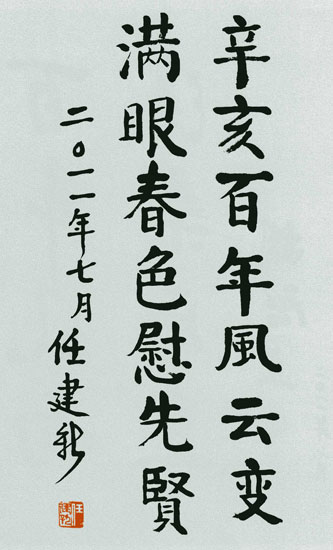 辛亥百年風云变
满眼春色慰先賢
二〇一一年七月任建新